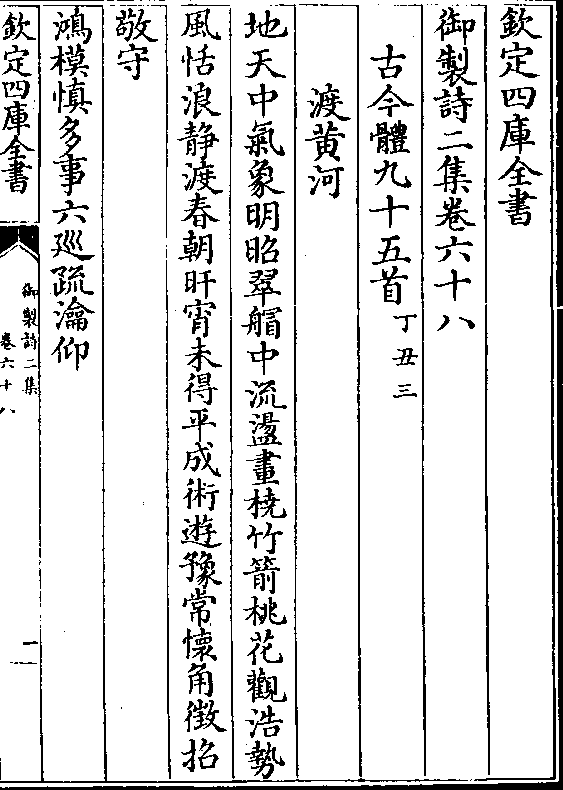 欽定四庫全書
御製詩二集卷六十八
古今體九十五首丁丑三
渡黃河
地天中氣象明昭翠艒中流盪畫橈竹箭桃花觀浩勢
風恬浪静渡春朝旰宵未得平成術遊豫常懷角徵招
敬守
鴻模慎多事六廵疏瀹仰
欽定四庫全書
御製詩二集
卷六十八
一